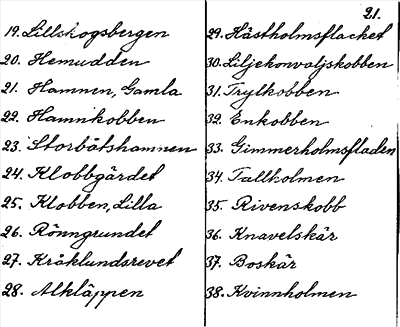 21.
19. Lillskogsbergen
20. Hemudden
21. Hamnen, Gamla
22. Hamnkobben
23. Storbåtshamnen
24. Klobbgärdet
25. Klobben, Lilla
26. Rönngrundet
27. Kråklundsrevet
28. Alkläppen
29. Hästholmsflacket
30. Liljekonvaljskobben
31. Trylkobben
32. Enkobben
33. Gimmerholmsfladen
34. Tallholmen
35. Rivenskobb
36. Knavelskär
37. Boskär
38. Kvinnholmen